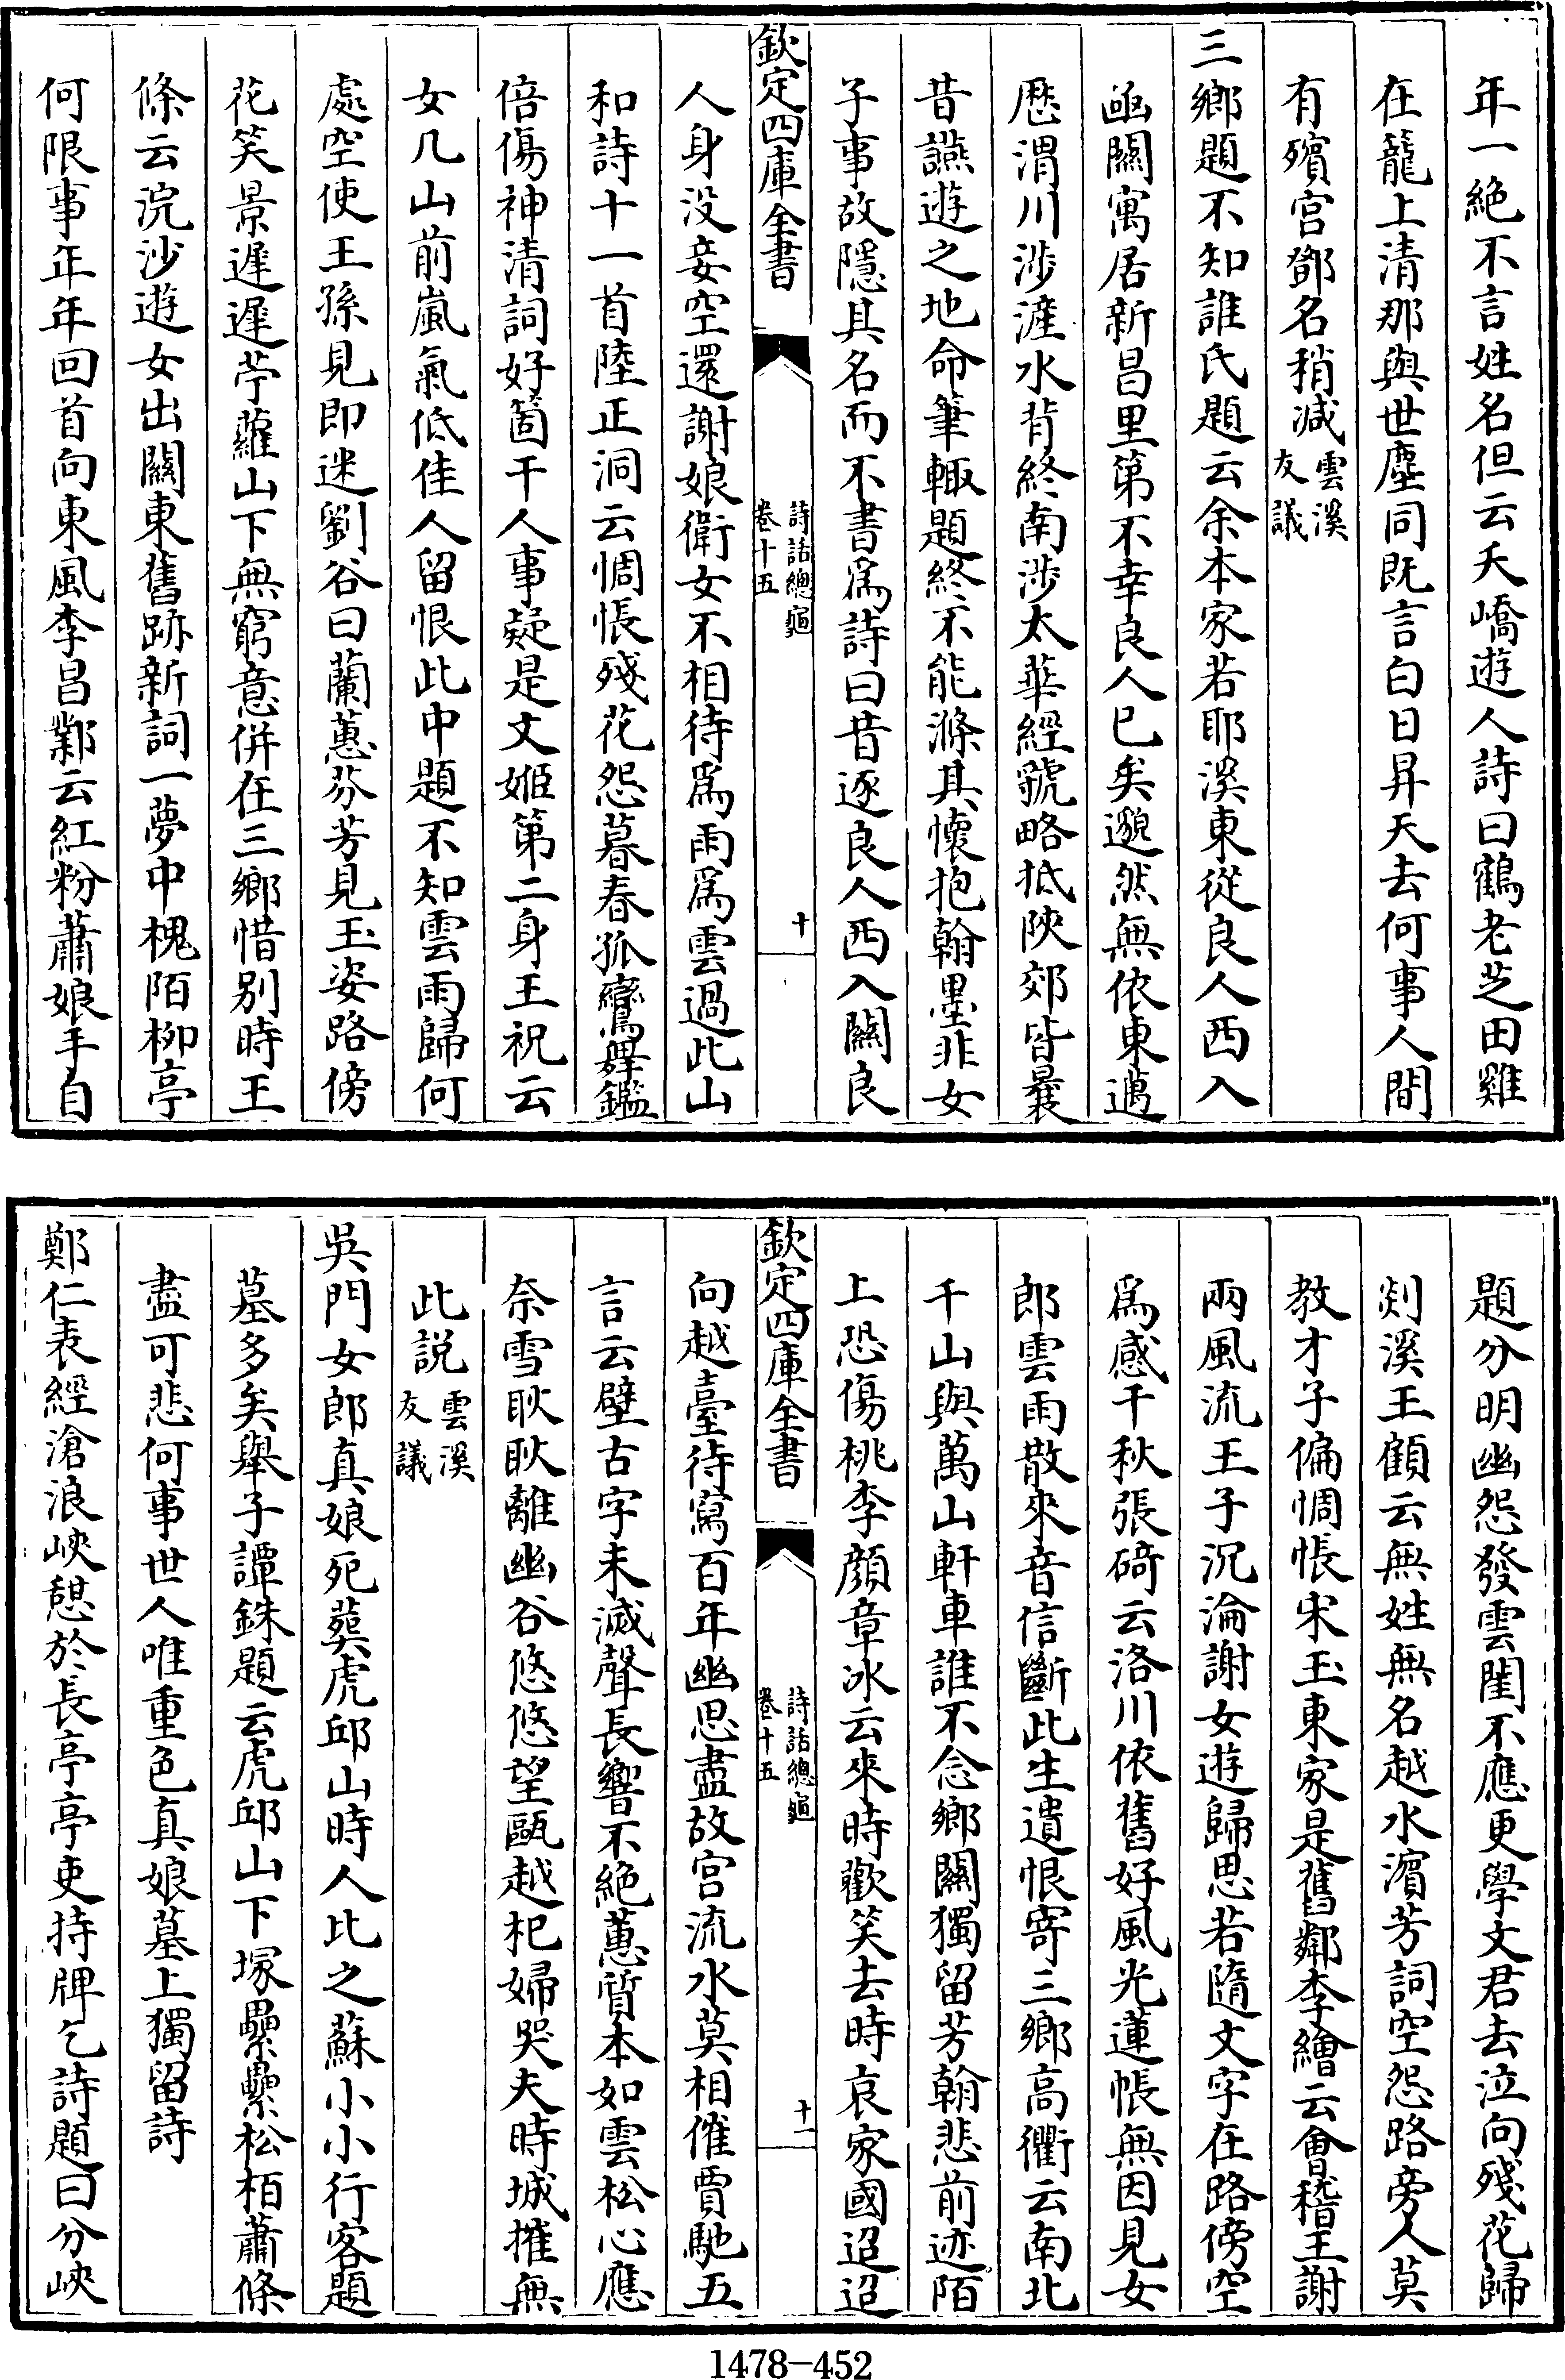 年一絶不言姓名但云夭嶠遊人詩曰鶴老芝田雞
在籠上清那與世塵同既言白日昇天去何事人間
有殯宫鄧名稍减雲溪友議
三鄉題不知誰氏題云余本家若耶溪東從良人西入
凾關寓居新昌里第不幸良人已矣邈然無依東邁
歴渭川渉滻水背終南渉太華經虢略抵陜郊皆曩
昔讌遊之地命筆輙題終不能滌其懷抱翰墨非女
子事故隱其名而不書爲詩曰昔逐良人西入關良
欽定四庫全書
詩話總龜
卷十五
十
人身没妾空還謝娘衛女不相待爲雨爲雲過此山
和詩十一首陸正洞云惆悵殘花怨暮春孤鸞舞鑑
倍傷神清詞好箇干人事疑是文姬第二身王祝云
女几山前嵐氣低佳人留恨此中題不知雲雨歸何
處空使王孫見即迷劉谷曰蘭蕙芬芳見玉姿路傍
花笑景遲遲苧蘿山下無窮意併在三鄉惜别時王
條云浣沙遊女出關東舊跡新詞一夢中槐陌柳亭
何限事年年回首向東風李昌鄴云紅粉蕭娘手自
題分明幽怨發雲閨不應更學文君去泣向殘花歸
剡溪王顧云無姓無名越水濵芳詞空怨路旁人莫
教才子偏惆悵宋玉東家是舊鄰李繪云會稽王謝
兩風流王子沉淪謝女遊歸思若隨文字在路傍空
爲感千秋張碕云洛川依舊好風光蓮帳無因見女
郎雲雨散來音信斷此生遺恨寄三鄉高衢云南北
千山與萬山軒車誰不念鄉關獨留芳翰悲前迹陌
上恐傷桃李顔章冰云來時歡笑去時哀家國迢迢
欽定四庫全書
詩話總龜
卷十五
十一
向越臺待寫百年幽思盡故宫流水莫相催賈馳五
言云壁古字未滅聲長響不絶蕙質本如雲松心應
奈雪耿耿離幽谷悠悠望甌越杞婦哭夫時城摧無
此説雲溪友議
吳門女郎真娘死葬虎邱山時人比之蘇小小行客題
墓多矣舉子譚銖題云虎邱山下塚纍纍松栢蕭條
盡可悲何事世人唯重色真娘墓上獨留詩
鄭仁表經滄浪峽憩於長亭亭吏持牌乞詩題曰分峽
1478—452